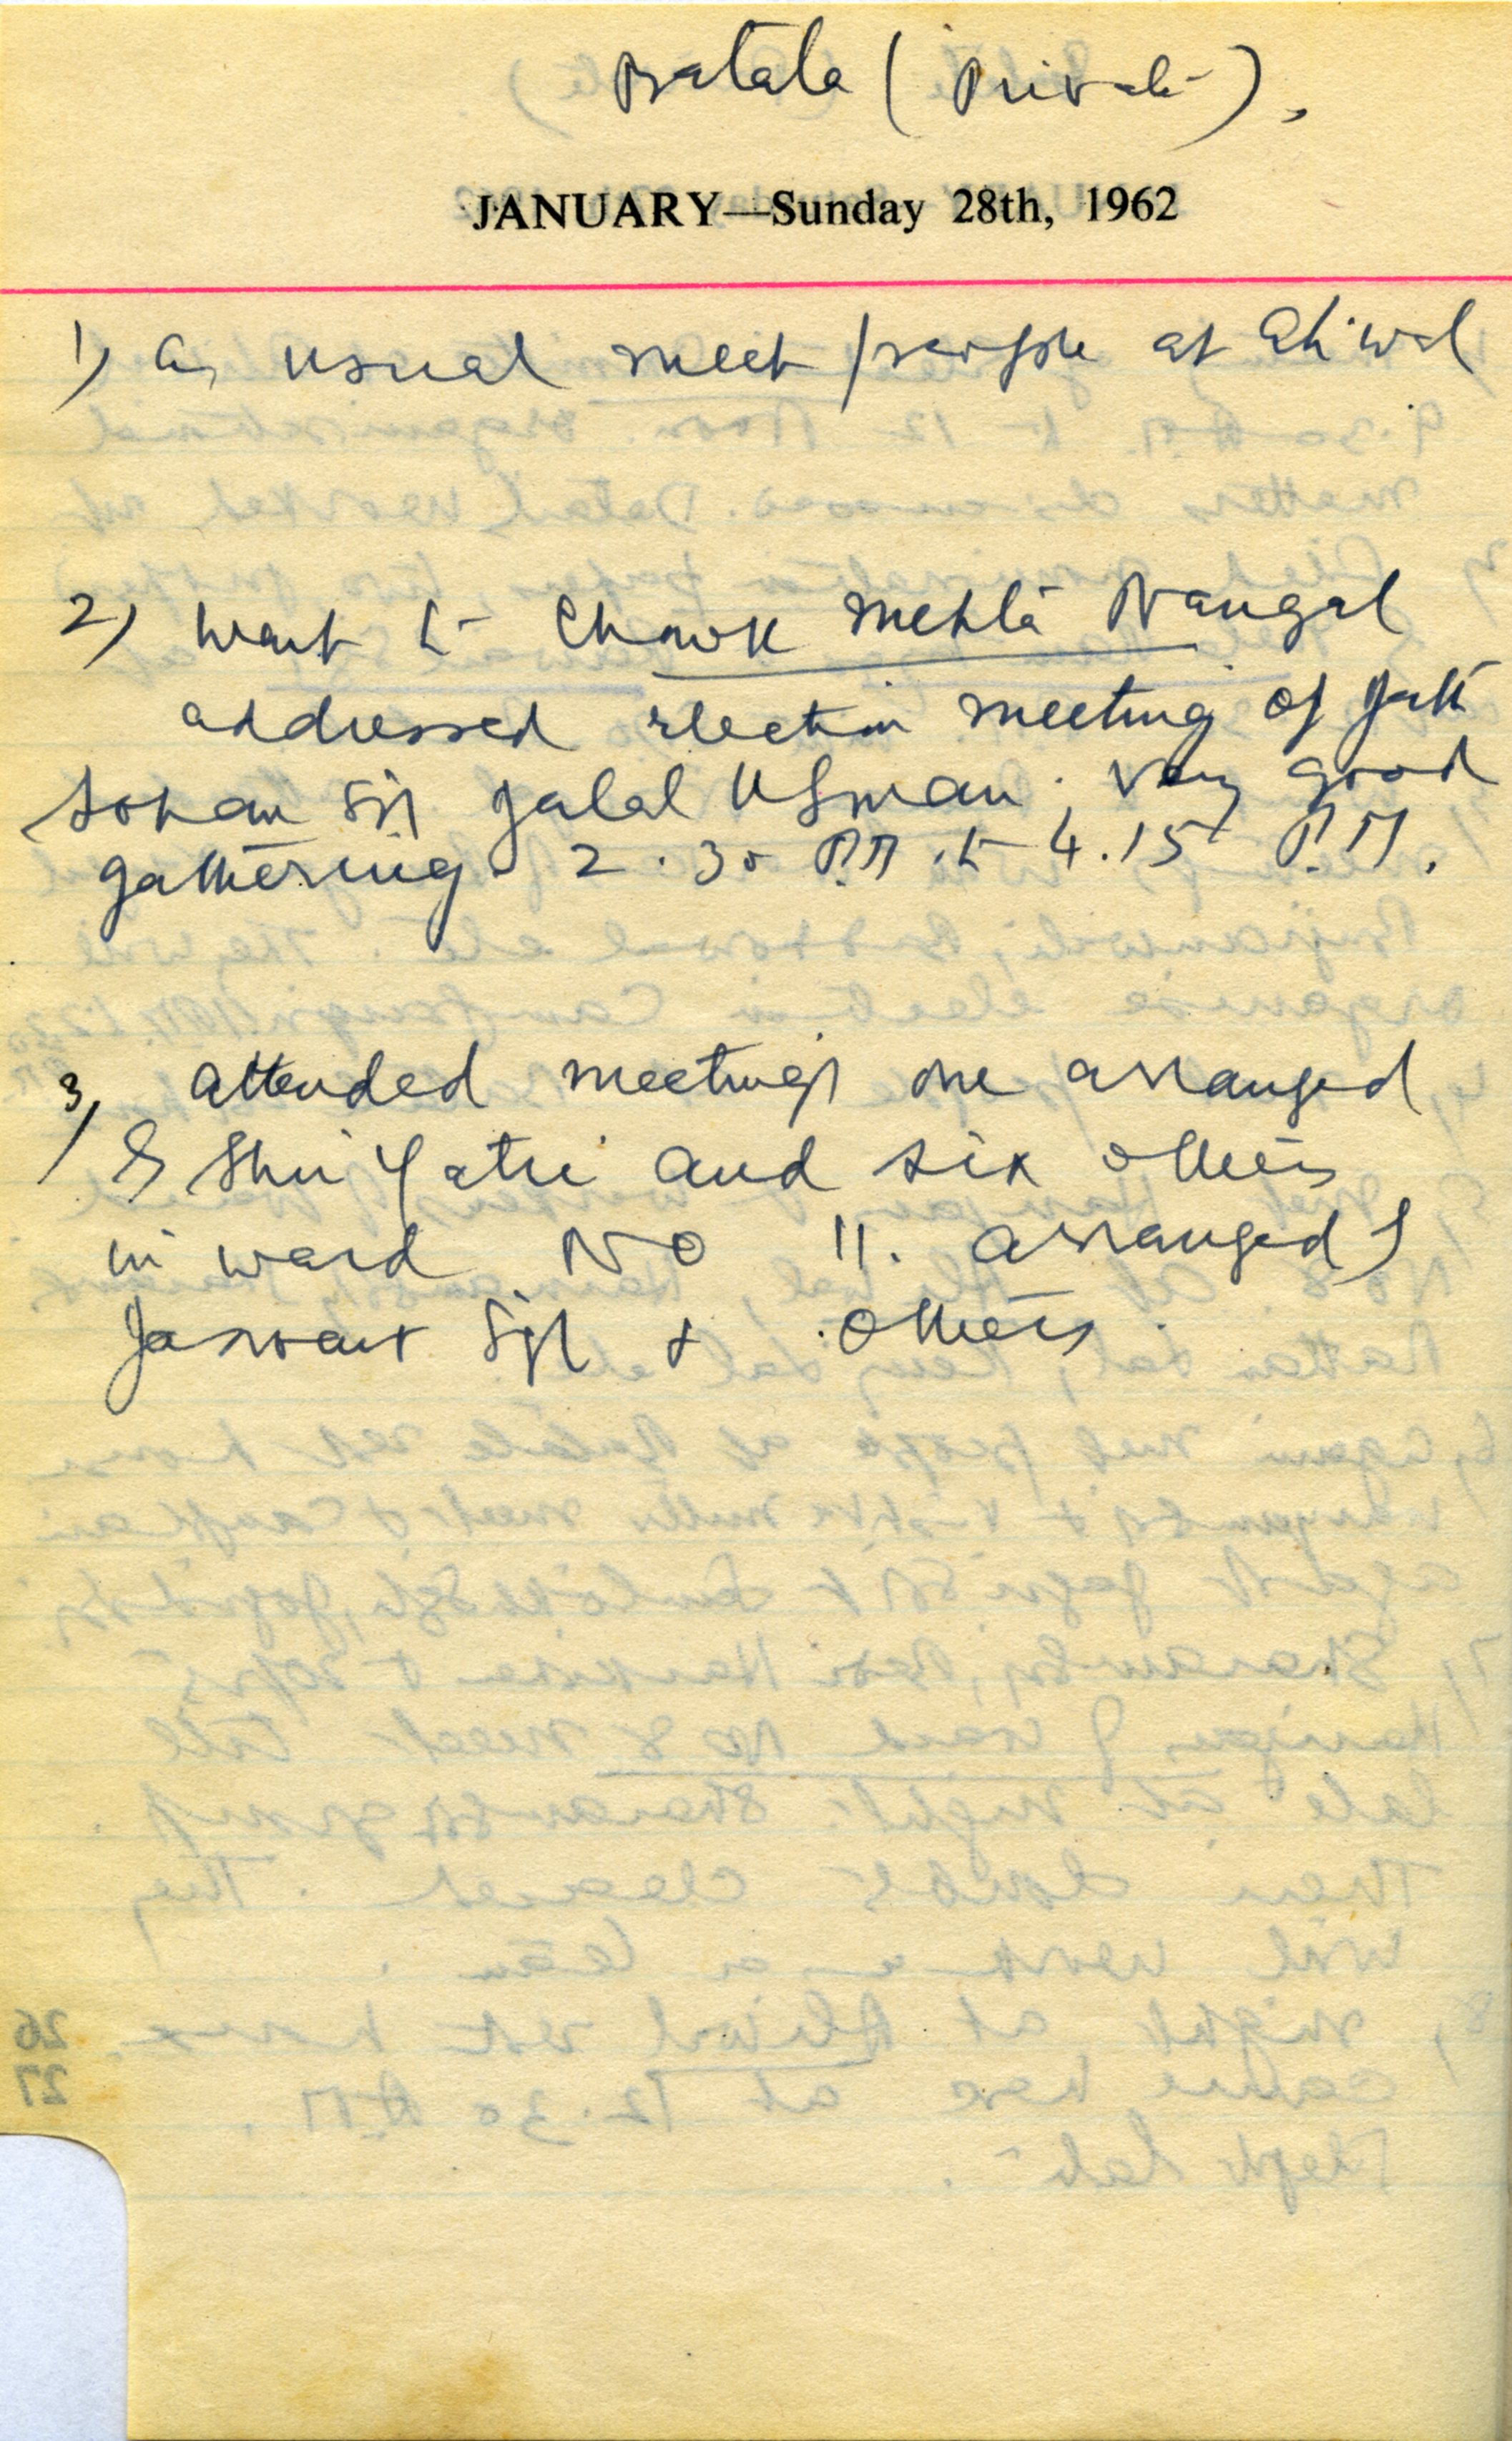 Batala (Private).
JANUARY—Sunday 28th, 1962
1) As usual meet people at Aliwal
2) Went to Chowk Mehta Nangal
addressed election meeting of Jath
Sohan Sgh Jalal Usman. Very good
gathering 2.30 P.M. to 4.15 P.M.
3) attended meetings one arranged
by Shri Yatri and six others
in ward No 11. arranged by
Jaswant Sgh & others.